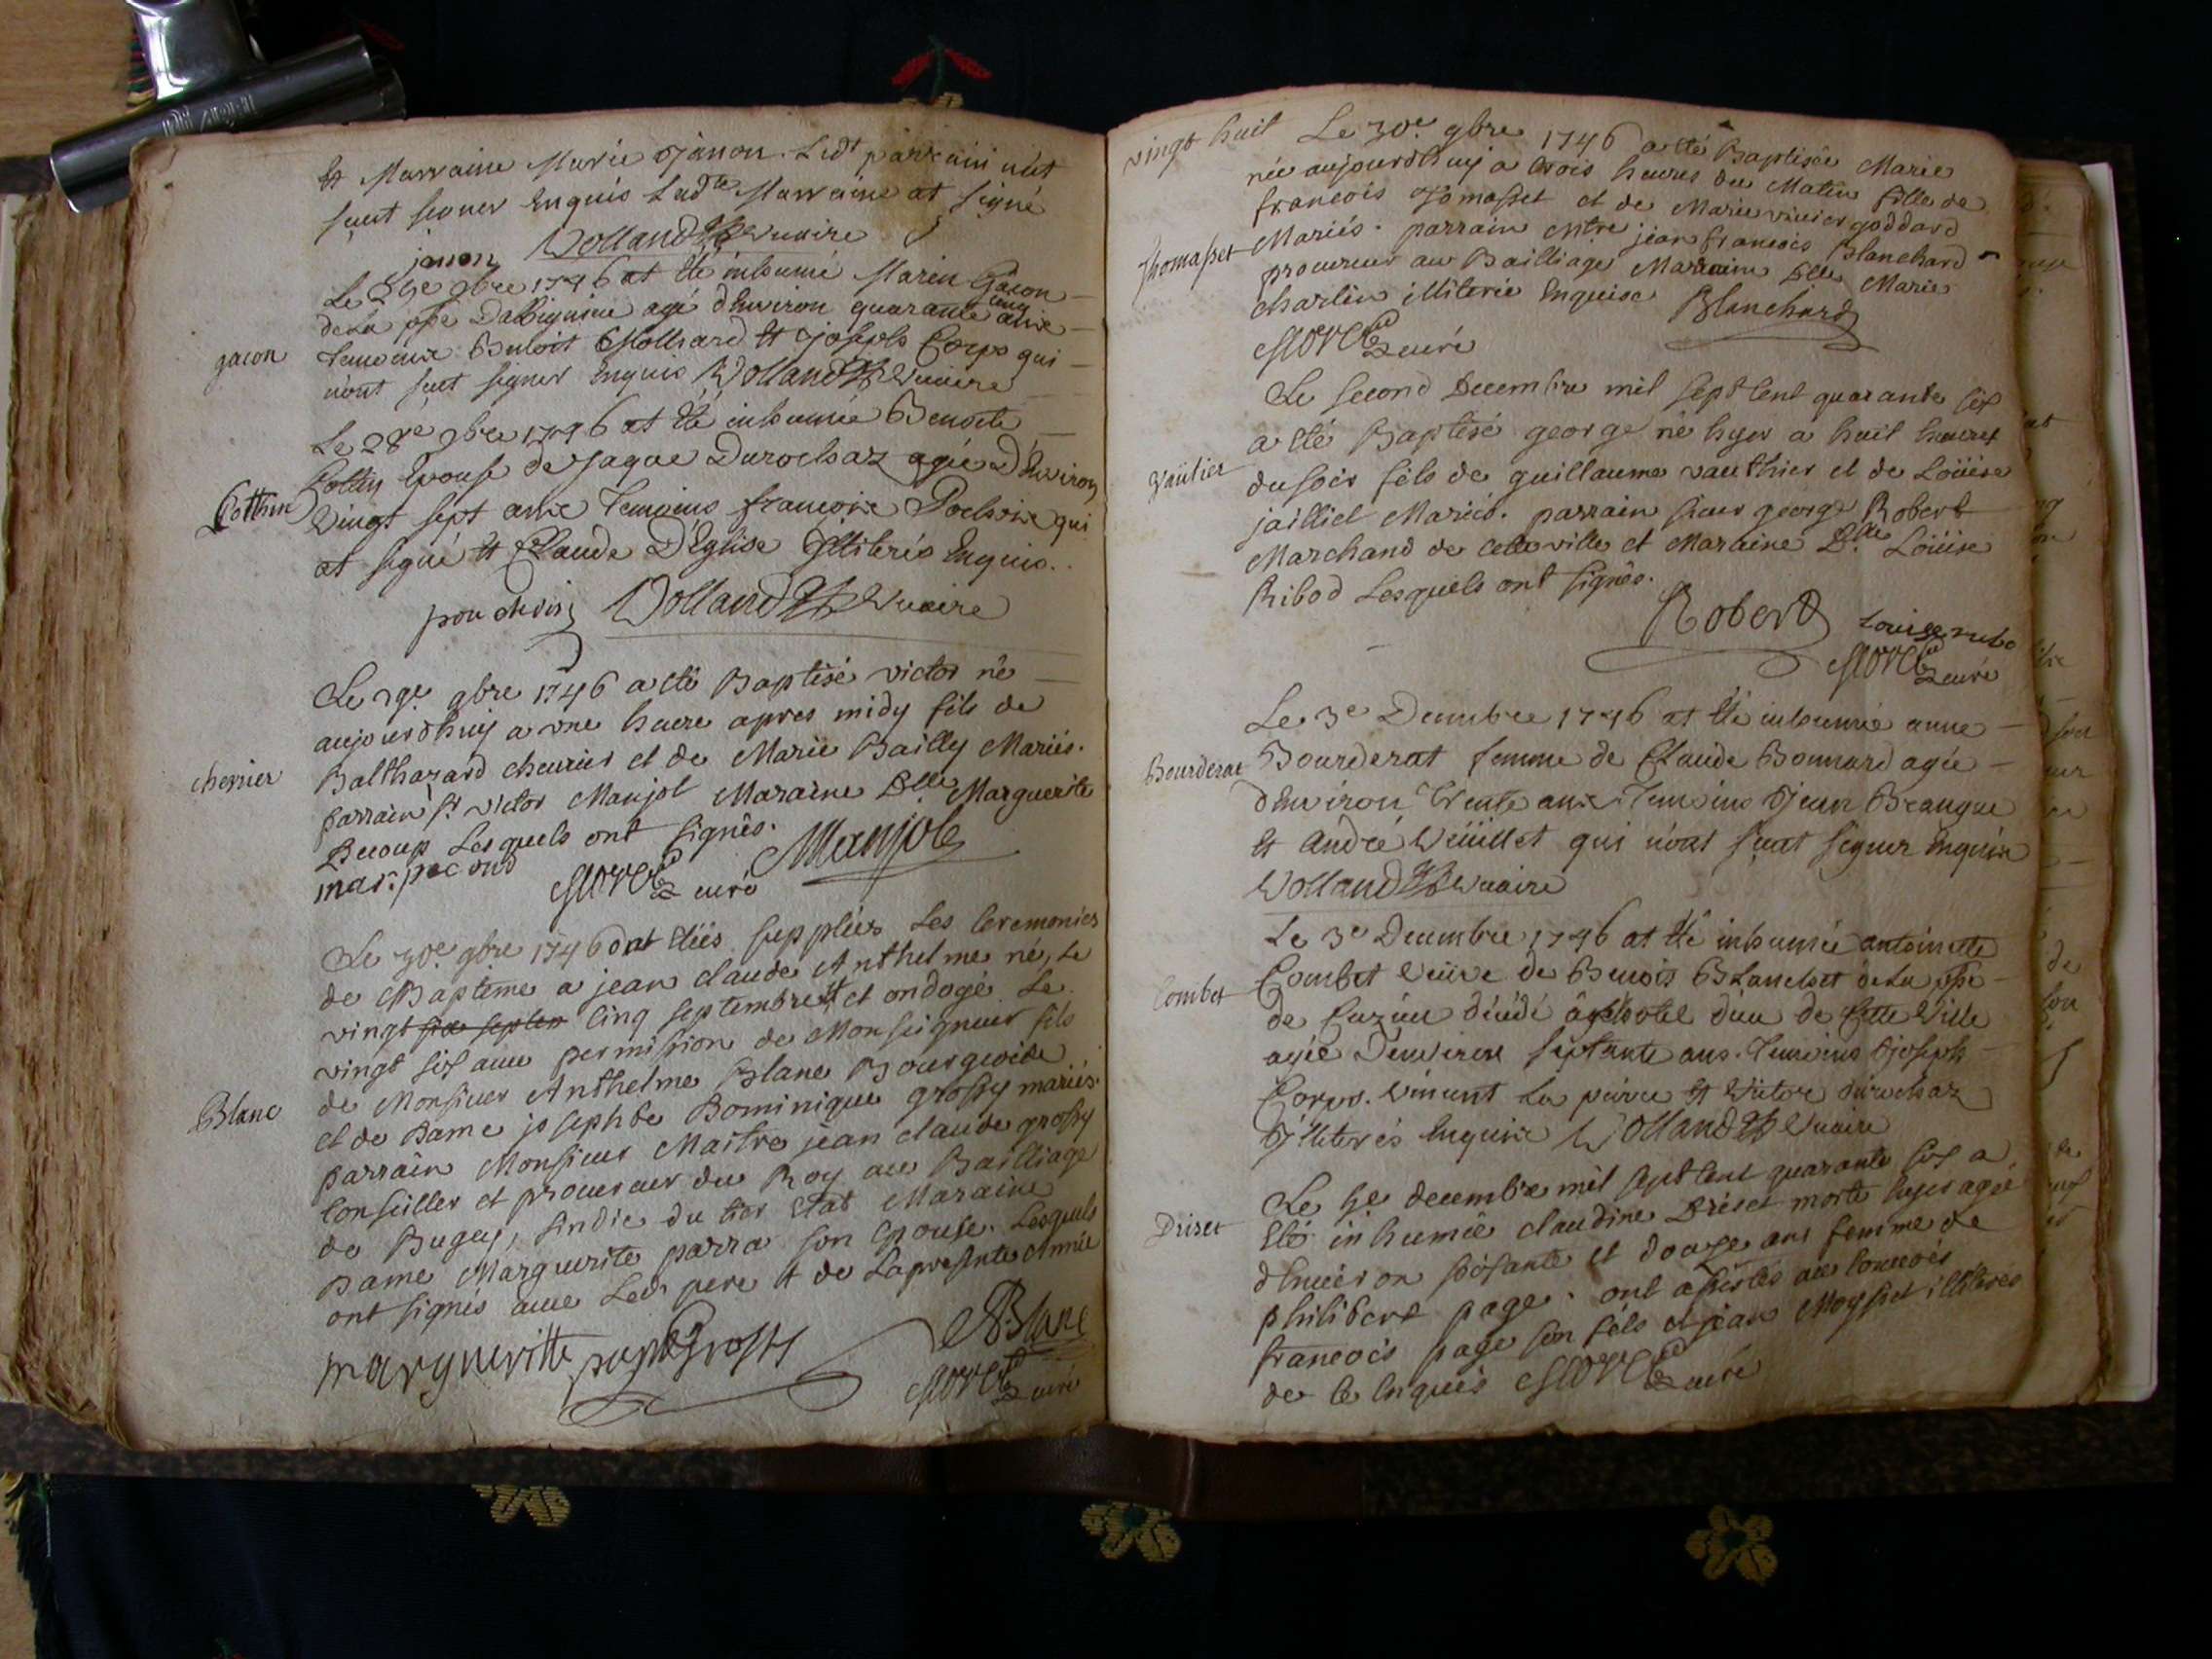 Et Marraine Marie Janon. Ledt parrain n'at
sçeut signer Enquis Ladte Marraine at signé
janon Volland Vicaire
Le 8bre 1746 at été inhumé Marin Gacon
gacon
de La psse Darbignieu agé d'Environ quarante cinq ans
temoins Benoit Mollard Et joseph Corps qui
n'ont sçut signer Enquis Volland Vicaire
Le 28e 9bre 1746 at été inhumée Benoite
Cottin
Cottin Epouse de Jaque Durochaz agée D'Environ
Vingt sept ans Temoins françois Pochoix qui
at signé Et Claude D'Eglise Illiterés Enquis.
Volland Vicaire
Le 29e 9bre 1746 a eté Baptisé victor né
aujourdhuij a une heure apres midy fils de
chevrier
Balthazard cheurier et de Marie Bailly Mariés.
parrain sr victor Manjot Maraine Dlle Marguerite
Lesquels ont signés. Manjot
curé
Le 30e 9bre 1746 ont etées suppléés Les Ceremonies
de Baptême a jean claude Anthelme né, Le
vingt six septem Cinq septembre et ondoyé Le
vingt six avec permission de Monseigneur fils
de Monsieur Anthelme Blanc Bourgeois
Blanc
et de Dame josephte Dominique grossy mariés.
parrain Monsieur Maitre jean claude grossy
Conseiller et procureur du Roy au Bailliage
de Bugey, sindic du tier Etat Maraine
Dame Marguerite parra son Epouse. Lesquels
ont signés avec Ledt pere # de La presente Année
margueritte parra Grossy Blanc
curé
vingt huit Le 30e 9bre 1746 a eté Baptisée Marie
née aujourdhuij a trois heures du Matin fille de
françois Tomasset et de Marie vivier goddard
Thomasset
Mariés. parrain Mtre jean françois Blanchard
procureur au Bailliage Maraine Dlle Marie
Charlin illiterée Enquise Blanchard
curé
Le second Decembre mil sept Cent quarante six
a eté Baptisé george né hyer a huit heures
vautier
du soir fils de guillaume vauthier et de Loüise
jailliet Mariés. parrain sieur george Robert
Marchand de cette ville et Maraine Dlle Loüise
Ribod Lesquels ont signés.
Robert Louise
curé
Le 3e Decembre 1746 at été inhumée anne
Bourderat
Bourderat femme de Claude Bonnard agée
d'Environ Trente ans. Temoins Jean Beauque
Et André Veüillet qui n'ont sçut signer Enquis
Volland Vicaire
Le 3e Decembre 1746 at été inhumée antoinette
Combet
Combet Veüve de Benois Blanchet de La psse
de Cuzieu décédé à L'hotel dieu de Cette Ville
agée D'environ septante ans. Temoins Joseph
Corps. Vincent La Et Victor durochaz
Illiterés Enquis Volland Vicaire
Le 5e decembre mil sept Cent quarante six a
Driset
Eté inhumée claudine Driset morte hyer agée
d'Environ soisante et douze ans femme de
philibert page. ont assistés au Convois
françois page son fils et jean Moysset illiteres
de ce Enquis curé